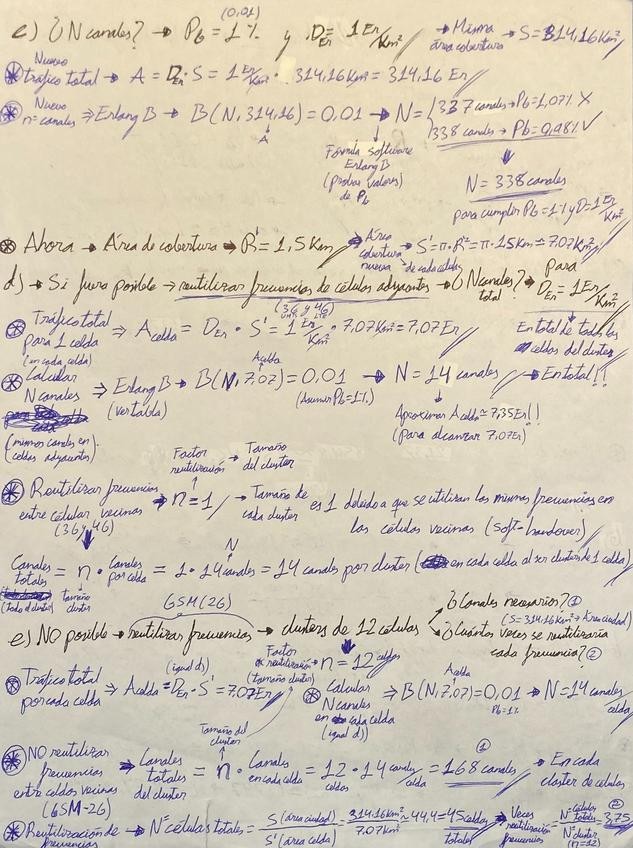 c) ¿N canales? → Pb = 1% (0,01) y D_Er = 1 Er/Km² → Misma área cobertura → S = 314,16 Km²
⊛ Nuevo tráfico total → A = D_Er · S = 1 Er/Km² · 314,16 Km² = 314,16 Er
⊛ Nuevo nº canales ⇒ Erlang B → B(N, 314,16) = 0,01 → N = { 337 canales → Pb = 1,07% X
338 canales → Pb = 0,98% V
A
Fórmula software Erlang B (probar valores) de Pb
N = 338 canales
para cumplir Pb = 1% y D = 1 Er/Km²
⊛ Ahora → Área de cobertura → R' = 1,5 Km → Área cobertura nueva de cada célula → S' = π · R'² = π · 1.5 Km = 7.07 Km²
d) → Si fuera posible → reutilizar frecuencias de células adyacentes → ¿N canales total? → para D_Er = 1 Er/Km²
(3G y 4G)
UMTS LTE
⊛ Tráfico total para 1 celda (en cada celda) ⇒ A celda = D_Er · S' = 1 Er/Km² · 7.07 Km² = 7,07 Er
En total de todas las celdas del cluster
⊛ Calcular N canales ⇒ Erlang B → B(N, 7.07) = 0,01 → N = 14 canales → En total!!
(ver tabla)
A celda
(Asumir Pb = 1%)
(mismos canales en celdas adyacentes)
Aproximar A celda ≃ 7,35 Er!!
(para alcanzar 7,07 Er)
Factor reutilización → Tamaño del cluster
⊛ Reutilizar frecuencias entre células vecinas (3G y 4G) → n = 1 → Tamaño de cada cluster es 1 debido a que se utilizan las mismas frecuencias en las células vecinas (soft-handover)
N
Canales totales = n · canales por celda = 1 · 14 canales = 14 canales por cluster (en cada celda al ser cluster de 1 celda)
(todo el cluster)
Tamaño cluster
GSM (2G)
e) NO posible → reutilizar frecuencias → clusters de 12 células
¿Canales necesarios? ①
(S = 314.16 Km² → Área ciudad)
¿Cuántas veces se reutilizaría cada frecuencia? ②
Factor reutilización (tamaño cluster) → n = 12 celdas
⊛ Tráfico total por cada celda ⇒ A celda = D_Er · S' = 7.07 Er
(igual d)
⊛ Calcular N canales en cada celda (igual d) → B(N, 7.07) = 0,01 → N = 14 canales/celda
A celda
Pb = 1%
Tamaño del cluster
⊛ NO reutilizar frecuencias entre celdas vecinas (GSM-2G) → Canales totales del cluster = n · Canales en cada celda = 12 · 14 canales/celda = 168 canales → En cada cluster de células
celda
①
⊛ Reutilización de frecuencias → Nº células totales = S (área ciudad) / S' (área celda) = 314.16 Km² / 7.07 Km² ≃ 44,4 = 45 celdas totales → Veces reutilización frecuencias = Nº células totales / Nº cluster (n=12) = 3,75
②